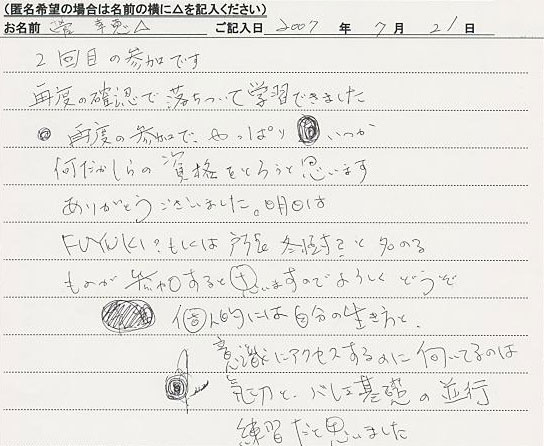 (匿名希望の場合は名前の横に△を記入ください)
お名前 菅 幸恵△ ご記入日 2007 年 7 月 21 日
2回目の参加です
再度の確認で落ちついて学習できました
再度の参加で、やっぱり いつか
何だかしらの資格をとろうと思います
ありがとうございました。明日は
FUYUKI?もしくは 冬 と名のる
ものが参加すると思いますのでよろしくどうぞ
個人的には自分の生き方と、
意識にアクセスするのに向いてるのは
気功と、バレエ基礎の並行
練習だと思いました